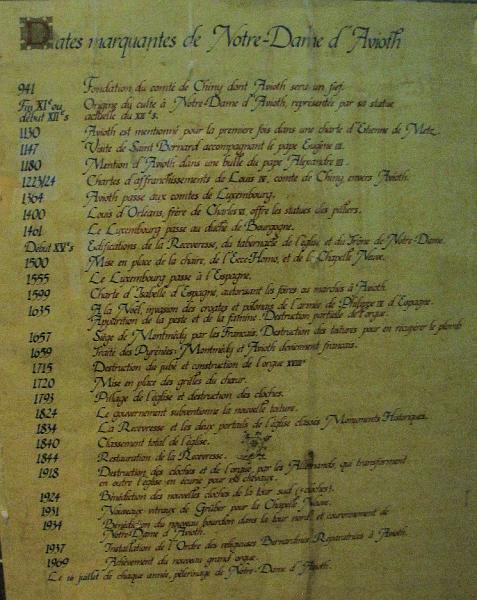 Dates marquantes de Notre-Dame d'Avioth
941 Fondation du comté de Chiny dont Avioth sera un fief.
Fin XIe ou Origine du culte à Notre-Dame d'Avioth, représentée par sa statue
début XIIe s actuelle du XIIe s.
1130 Avioth est mentionné pour la première fois dans une charte d'Etienne de Metz.
1147 Visite de Saint Bernard accompagnant le pape Eugène III.
1180 Mention d'Avioth dans une bulle du pape Alexandre III.
1223/24 Chartes d'affranchissements de Louis IV, comte de Chiny, envers Avioth.
1364 Avioth passe aux comtes de Luxembourg.
1400 Louis d'Orléans, frère de Charles VI, offre les statues des piliers.
1461 Le Luxembourg passe au duché de Bourgogne.
Début XVe s Edifications de la Recevresse, du tabernacle de l'église et du Trône de Notre-Dame.
1500 Mise en place de la chaire, de l'Ecce-Homo, et de la Chapelle Neuve.
1555 Le Luxembourg passe à l'Espagne.
1599 Charte d'Isabelle d'Espagne, autorisant les foires au marchés à Avioth.
1635 A la Noël, invasion des croates et polonais de l'armée de Philippe IV d'Espagne.
Apparition de la peste et de la famine. Destruction partielle de l'orgue.
1657 Siège de Montmédy par les Français. Destruction des toitures pour en récupérer le plomb
1659 Traité des Pyrénées: Montmédy et Avioth deviennent français.
1715 Destruction du jubé et construction de l'orgue XVIIIe
1720 Mise en place des grilles du chœur.
1793 Pillage de l'église et destruction des cloches.
1824 Le gouvernement subventionne la nouvelle toiture.
1834 La Recevresse et les deux portails de l'église classés Monuments Historiques.
1840 Classement total de l'église.
1844 Restauration de la Recevresse.
1918 Destruction des cloches et de l'orgue, par les Allemands, qui transforment
en outre l'église en écurie pour chevaux.
1924 Bénédiction des nouvelles cloches de la tour sud (3 cloches).
1931 Nouveaux vitraux de Grüber pour la Chapelle Neuve.
1934 Bénédiction du nouveau bourdon dans la tour nord et couronnement de
Notre-Dame d'Avioth.
1937 Installation de l'Ordre des religieuses Bernardines Réparatrices à Avioth.
1969 Achèvement du nouveau grand orgue.
Le 16 juillet de chaque année, pèlerinage de Notre-Dame d'Avioth.